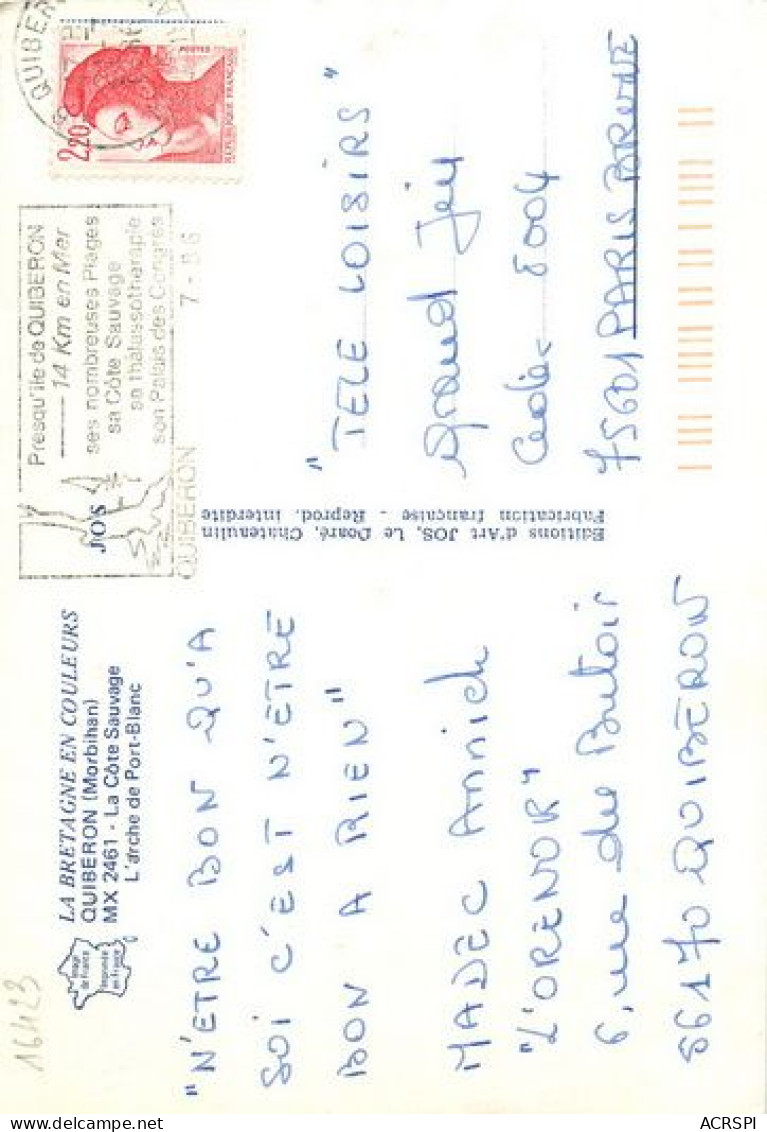 16423
Image de France
Imprimée en France
LA BRETAGNE EN COULEURS
QUIBERON (Morbihan)
MX 2461 - La Côte Sauvage
L'arche de Port-Blanc
"N'ETRE BON QU'A
SOI C'EST N'ETRE
BON A RIEN"
MADEC Annick
"L'ORENOR"
6, rue du Butoir
56170 QUIBERON
Editions d'Art JOS, Le Doaré, Chateaulin
Fabrication française - Reprod. interdite
JOS
Presqu'île de QUIBERON
14 Km en Mer
ses nombreuses Plages
sa Côte Sauvage
sa thalassothérapie
son Palais des Congrès
QUIBERON
7-
QUIBERON
2,20
POSTES
REPUBLIQUE FRANÇAISE
"TELE LOISIRS"
Grand Jeu
Cedex 8004
75601 PARIS BRUNE
ACRSPI